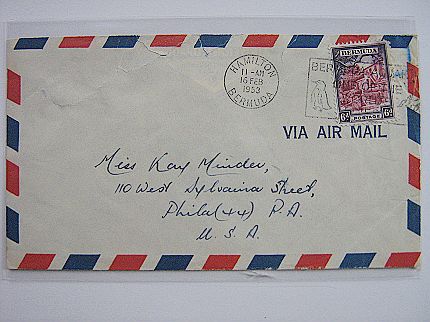 HAMILTON
11-AM
16 FEB
1953
BERMUDA
BERMUDA
6D
POSTAGE
6D
VIA AIR MAIL
Miss Kay Minder,
110 West Sylvaina Street,
Phila (44) P.A.
U.S.A.